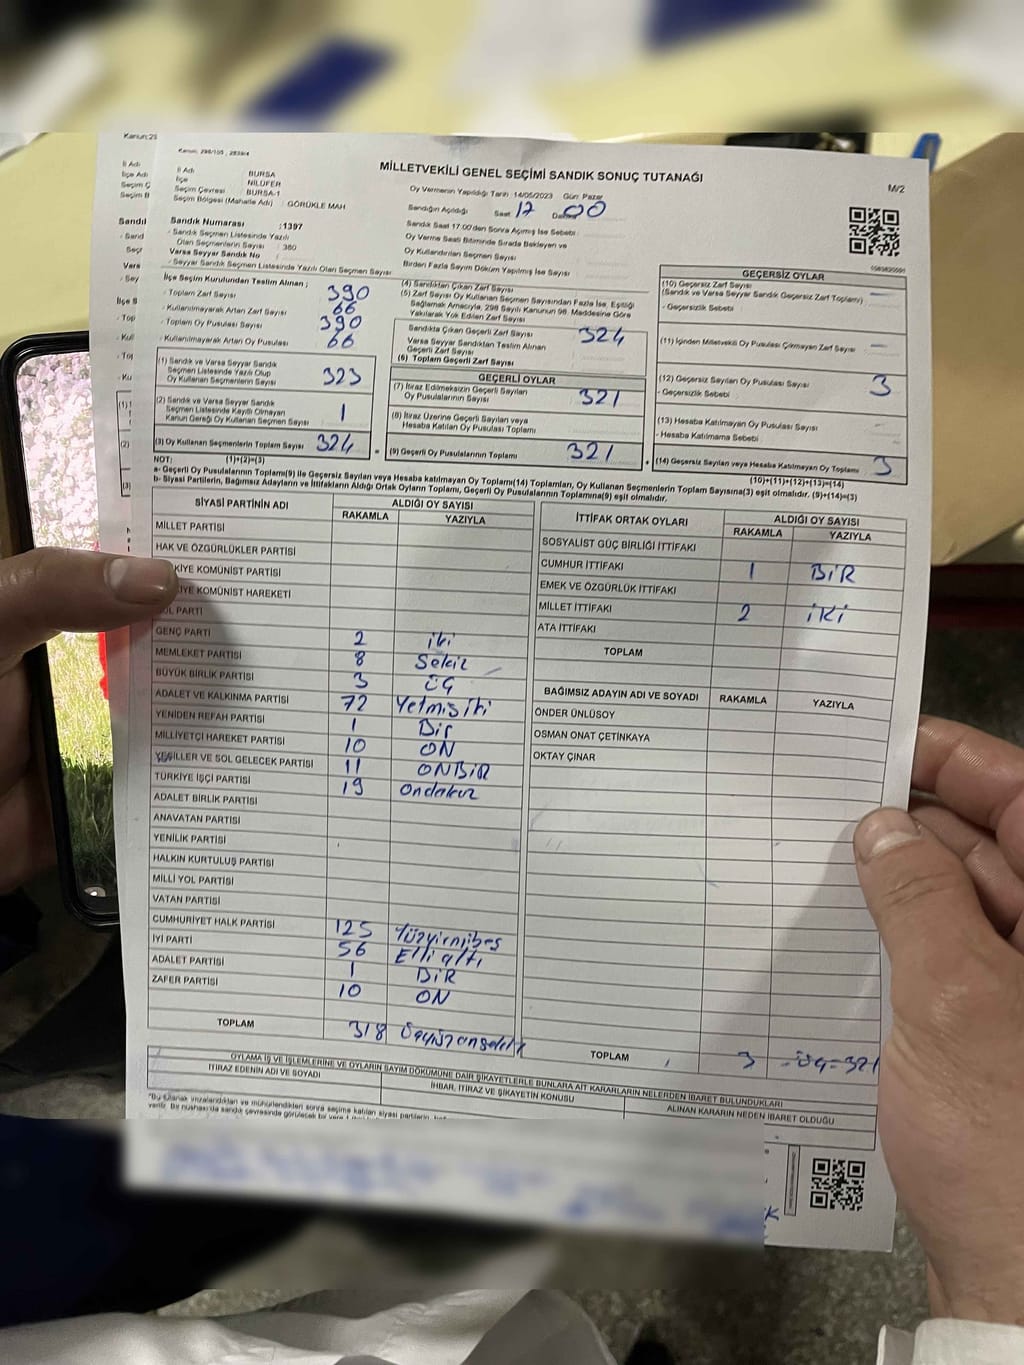 Kanun: 298/105, 2839/4
MİLLETVEKİLİ GENEL SEÇİMİ SANDIK SONUÇ TUTANAĞI
M/2
İl Adı : BURSA
İlçe : NİLÜFER
Seçim Çevresi : BURSA-1
Seçim Bölgesi (Mahalle Adı) : GÖRÜKLE MAH
Sandık Numarası :1397
- Sandık Seçmen Listesinde Yazılı
Olan Seçmenlerin Sayısı : 380
Varsa Seyyar Sandık No
- Seyyar Sandık Seçmen Listesinde Yazılı Olan Seçmen Sayısı
Oy Vermenin Yapıldığı Tarih :14/05/2023 Gün: Pazar
Sandığın Açıldığı Saat 17 Dakika 00
Sandık Saat 17.00'den Sonra Açılmış İse Sebebi :
Oy Verme Saati Bitiminde Sırada Bekleyen ve
Oy Kullandırılan Seçmen Sayısı
Birden Fazla Sayım Döküm Yapılmış İse Sayısı
İlçe Seçim Kurulundan Teslim Alınan ;
- Toplam Zarf Sayısı 390
- Kullanılmayarak Artan Zarf Sayısı 66
- Toplam Oy Pusulası Sayısı 390
- Kullanılmayarak Artan Oy Pusulası 66
(1) Sandık ve Varsa Seyyar Sandık
Seçmen Listesinde Yazılı Olup
Oy Kullanan Seçmenlerin Sayısı 323
(2) Sandık ve Varsa Seyyar Sandık
Seçmen Listesinde Kayıtlı Olmayan
Kanun Gereği Oy Kullanan Seçmen Sayısı 1
(3) Oy Kullanan Seçmenlerin Toplam Sayısı 324
(4) Sandıktan Çıkan Zarf Sayısı
(5) Zarf Sayısı Oy Kullanan Seçmen Sayısından Fazla İse, Eşitliği
Sağlamak Amacıyla, 298 Sayılı Kanunun 98. Maddesine Göre
Yakılarak Yok Edilen Zarf Sayısı
Sandıkta Çıkan Geçerli Zarf Sayısı 324
Varsa Seyyar Sandıktan Teslim Alınan
Geçerli Zarf Sayısı
(6) Toplam Geçerli Zarf Sayısı
GEÇERLİ OYLAR
(7) İtiraz Edilmeksizin Geçerli Sayılan
Oy Pusulalarının Sayısı 321
(8) İtiraz Üzerine Geçerli Sayılan veya
Hesaba Katılan Oy Pusulası Toplamı
(9) Geçerli Oy Pusulalarının Toplamı 321
GEÇERSİZ OYLAR
(10) Geçersiz Zarf Sayısı
(Sandık ve Varsa Seyyar Sandık Geçersiz Zarf Toplamı)
- Geçersizlik Sebebi
(11) İçinden Milletvekili Oy Pusulası Çıkmayan Zarf Sayısı
(12) Geçersiz Sayılan Oy Pusulası Sayısı 3
- Geçersizlik Sebebi
(13) Hesaba Katılmayan Oy Pusulası Sayısı
- Hesaba Katılmama Sebebi
(14) Geçersiz Sayılan veya Hesaba Katılmayan Oy Toplamı 3
NOT: (1)+(2)=(3) (10)+(11)+(12)+(13)=(14)
a- Geçerli Oy Pusulalarının Toplamı(9) ile Geçersiz Sayılan veya Hesaba katılmayan Oy Toplamı(14) Toplamları, Oy Kullanan Seçmenlerin Toplam Sayısına(3) eşit olmalıdır. (9)+(14)=(3)
b- Siyasi Partilerin, Bağımsız Adayların ve İttifakların Aldığı Ortak Oyların Toplamı, Geçerli Oy Pusulalarının Toplamına(9) eşit olmalıdır.
SİYASİ PARTİNİN ADI ALDIĞI OY SAYISI
RAKAMLA YAZIYLA
MİLLET PARTİSİ
HAK VE ÖZGÜRLÜKLER PARTİSİ
KİYE KOMÜNİST PARTİSİ
KİYE KOMÜNİST HAREKETİ
OL PARTİ
GENÇ PARTİ 2 iki
MEMLEKET PARTİSİ 8 Sekiz
BÜYÜK BİRLİK PARTİSİ 3 üç
ADALET VE KALKINMA PARTİSİ 72 Yetmişiki
YENİDEN REFAH PARTİSİ 1 Bir
MİLLİYETÇİ HAREKET PARTİSİ 10 ON
YEŞİLLER VE SOL GELECEK PARTİSİ 11 ONBİR
TÜRKİYE İŞÇİ PARTİSİ 19 Ondokuz
ADALET BİRLİK PARTİSİ
ANAVATAN PARTİSİ
YENİLİK PARTİSİ
HALKIN KURTULUŞ PARTİSİ
MİLLİ YOL PARTİSİ
VATAN PARTİSİ
CUMHURİYET HALK PARTİSİ 125 Yüzyirmibeş
İYİ PARTİ 56 Elli altı
ADALET PARTİSİ 1 BİR
ZAFER PARTİSİ 10 ON
TOPLAM 318 Üçyüzonsekiz
İTTİFAK ORTAK OYLARI ALDIĞI OY SAYISI
RAKAMLA YAZIYLA
SOSYALİST GÜÇ BİRLİĞİ İTTİFAKI
CUMHUR İTTİFAKI 1 BİR
EMEK VE ÖZGÜRLÜK İTTİFAKI
MİLLET İTTİFAKI 2 İKİ
ATA İTTİFAKI
TOPLAM
BAĞIMSIZ ADAYIN ADI VE SOYADI RAKAMLA YAZIYLA
ÖNDER ÜNLÜSOY
OSMAN ONAT ÇETİNKAYA
OKTAY ÇINAR
TOPLAM 3 Üç=321
OYLAMA İŞ VE İŞLEMLERİNE VE OYLARIN SAYIM DÖKÜMÜNE DAİR ŞİKAYETLERLE BUNLARA AİT KARARLARIN NELERDEN İBARET BULUNDUKLARI
İTİRAZ EDENİN ADI VE SOYADI İHBAR, İTİRAZ VE ŞİKAYETİN KONUSU ALINAN KARARIN NEDEN İBARET OLDUĞU